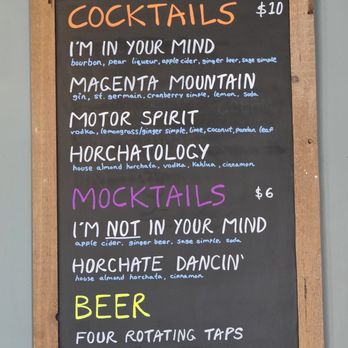 COCKTAILS $10
I'M IN YOUR MIND
bourbon, pear liqueur, apple cider, ginger beer, sage simple
MAGENTA MOUNTAIN
gin, st. germain, cranberry simple, lemon, soda
MOTOR SPIRIT
vodka, lemongrass/ginger simple, lime, coconut, pandan leaf
HORCHATOLOGY
house almond horchata, vodka, kahlua, cinnamon
MOCKTAILS $6
I'M NOT IN YOUR MIND
apple cider, ginger beer, sage simple, soda
HORCHATE DANCIN'
house almond horchata, cinnamon
BEER
FOUR ROTATING TAPS